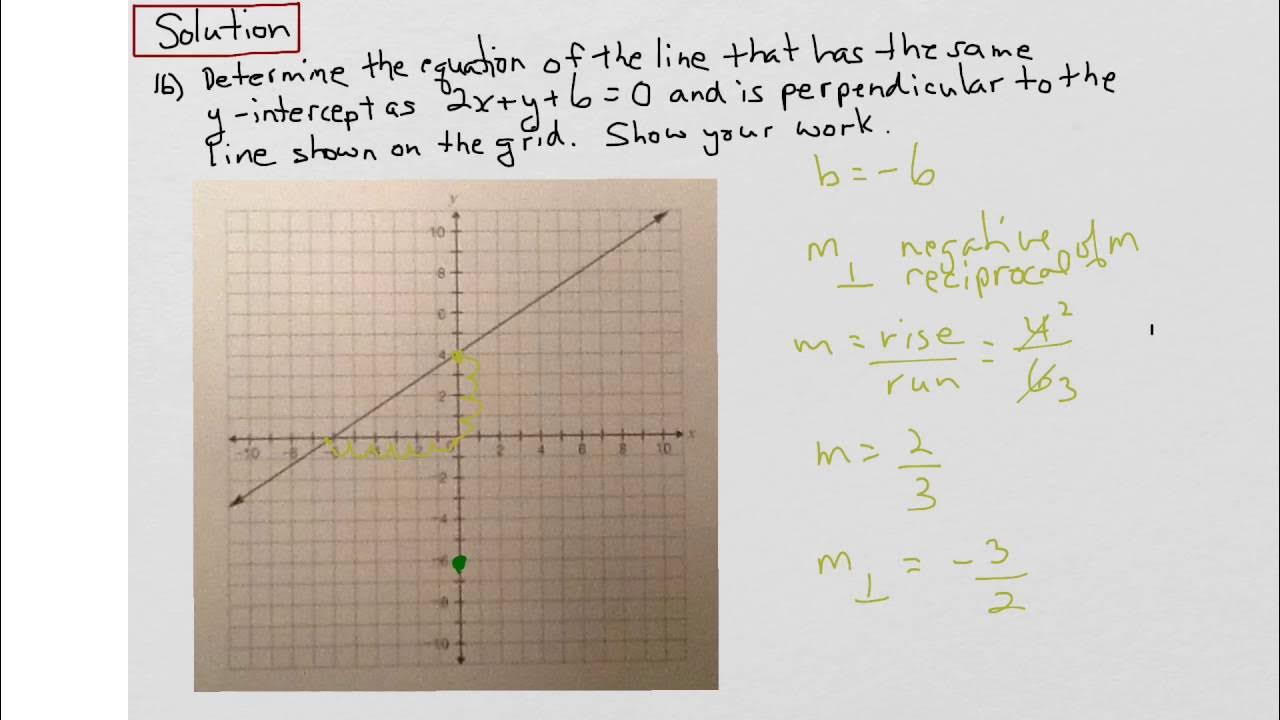 Solution
16) Determine the equation of the line that has the same
y-intercept as 2x+y+6=0 and is perpendicular to the
line shown on the grid. Show your work.
b=-6
m⊥ negative reciprocal of m
m = rise/run = 4/6 2/3
m = 2/3
m⊥ = -3/2
y
10
8
6
4
2
-10 -8 2 4 6 8 10 x
-2
-4
-6
-8
-10